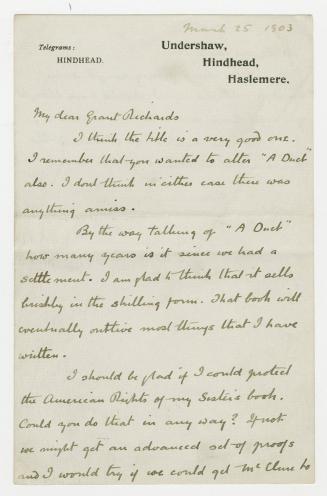 March 25 1903
Telegrams:
HINDHEAD.
Undershaw,
Hindhead,
Haslemere.
My dear Grant Richards
I think the title is a very good one.
I remember that you wanted to alter "A Duet"
also. I dont think in either case there was
anything amiss.
By the way talking of "A Duet"
how many years is it since we had a
settlement. I am glad to think that it sells
briskly in the shilling form. That book will
eventually outlive most things that I have
written.
I should be glad if I could protect
the American Rights of my Sisters book.
Could you do that in any way? If not
we might get an advanced set of proofs
and I would try if we could get McClure to